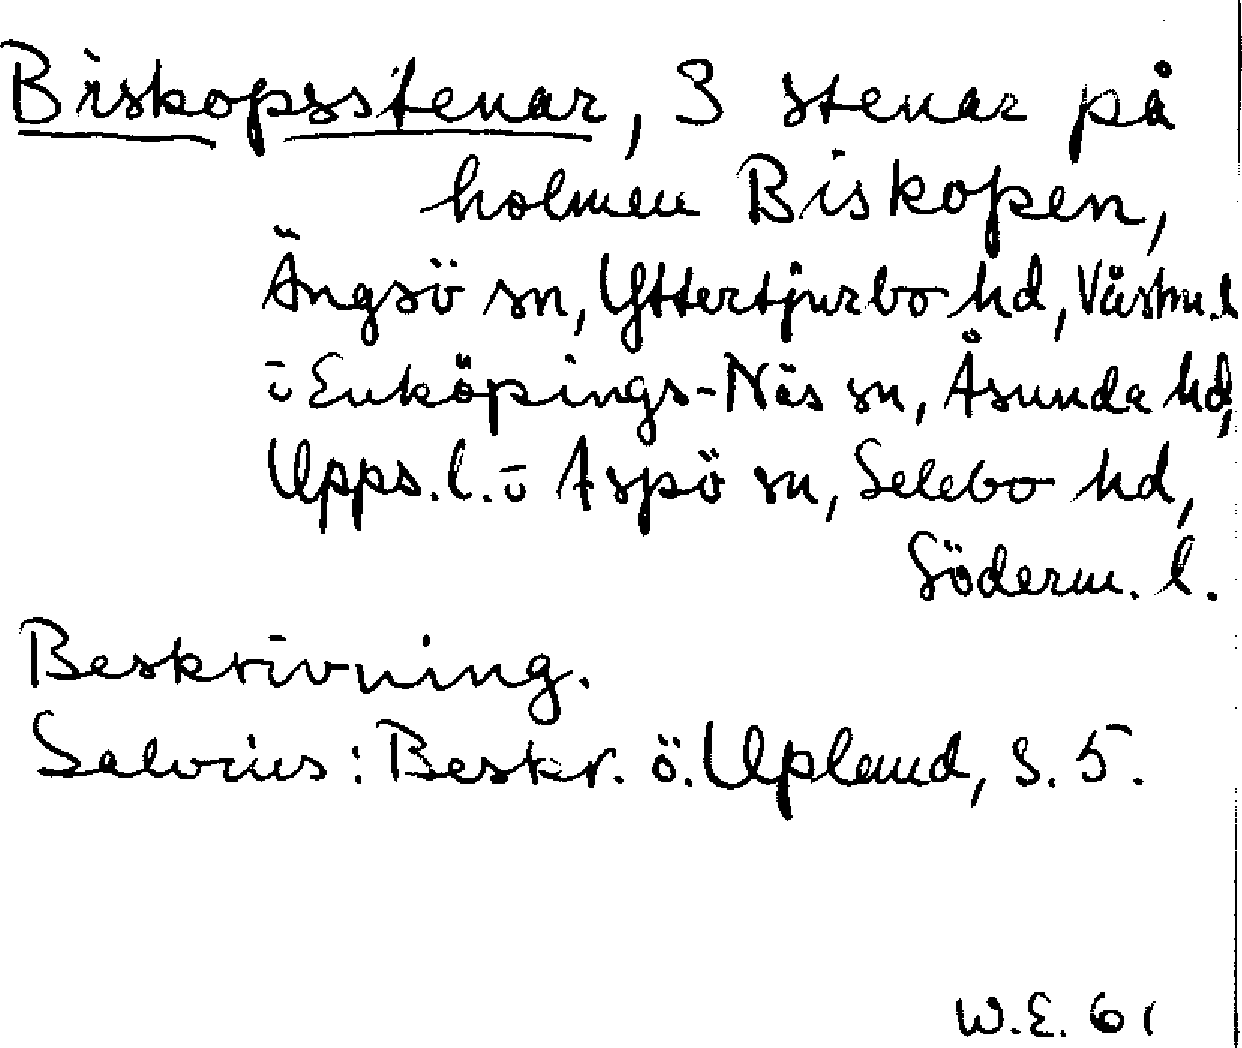 Biskopsstenar, 3 stenar på
holmen Biskopen,
Ängsö sn, Yttertjurbo hd, Västm. l
o Enköpings-Näs sn, Åsunda hd,
Upps. l. o Aspö sn, Selebo hd,
Söderm. l.
Beskrivning.
Salvius: Beskr. ö. Upland, S. 5.
W.E. 61